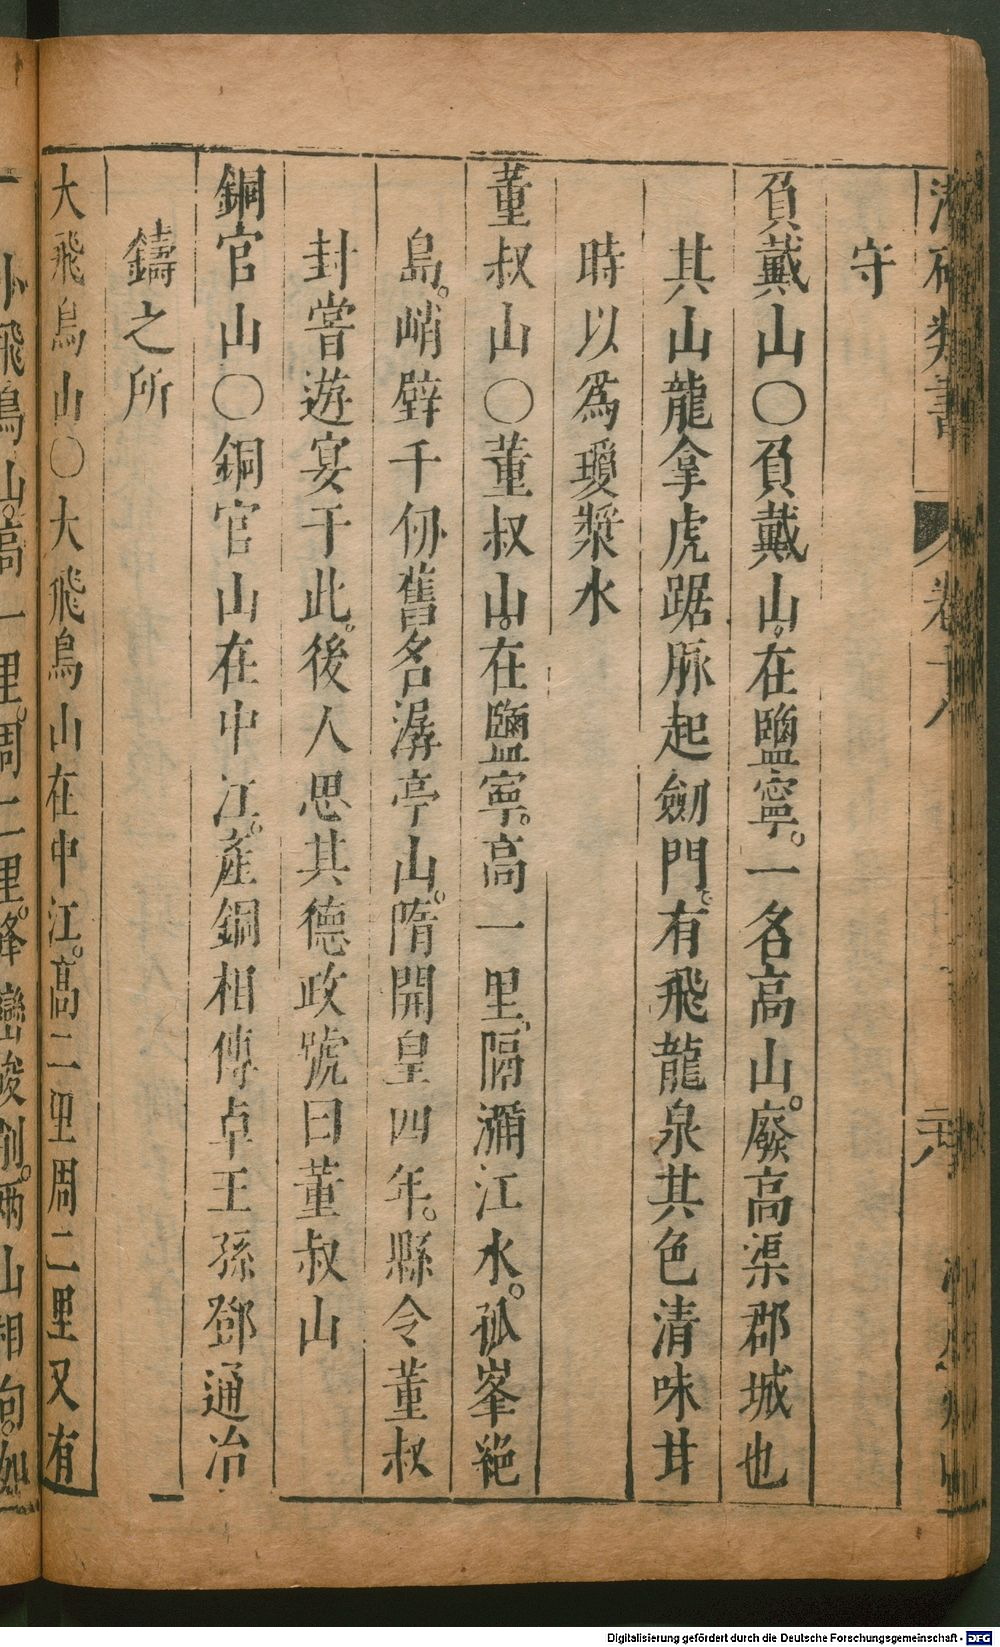 守
負戴山〇負戴山。在鹽寧。一名高山。廢高渠郡城也
其山龍拿虎踞脈起劒門。有飛龍泉其色清味甘
時以爲瓊漿水
董叔山〇董叔山。在鹽寧。高一里,隔瀰江水。孤峯絶
島。峭壁千仞舊名潺亭山。隋開皇四年。縣令董叔
封嘗遊宴于此。後人思其德政號曰董叔山
銅官山〇銅官山在中江。產銅相傳卓王孫鄧通冶
鑄之所
大飛烏山〇大飛烏山在中江。高二里周二里又有
小飛烏山。高一里。周二里。峰巒峻削。兩山相向。如
Digitalisierung gefördert durch die Deutsche Forschungsgemeinschaft - DFG